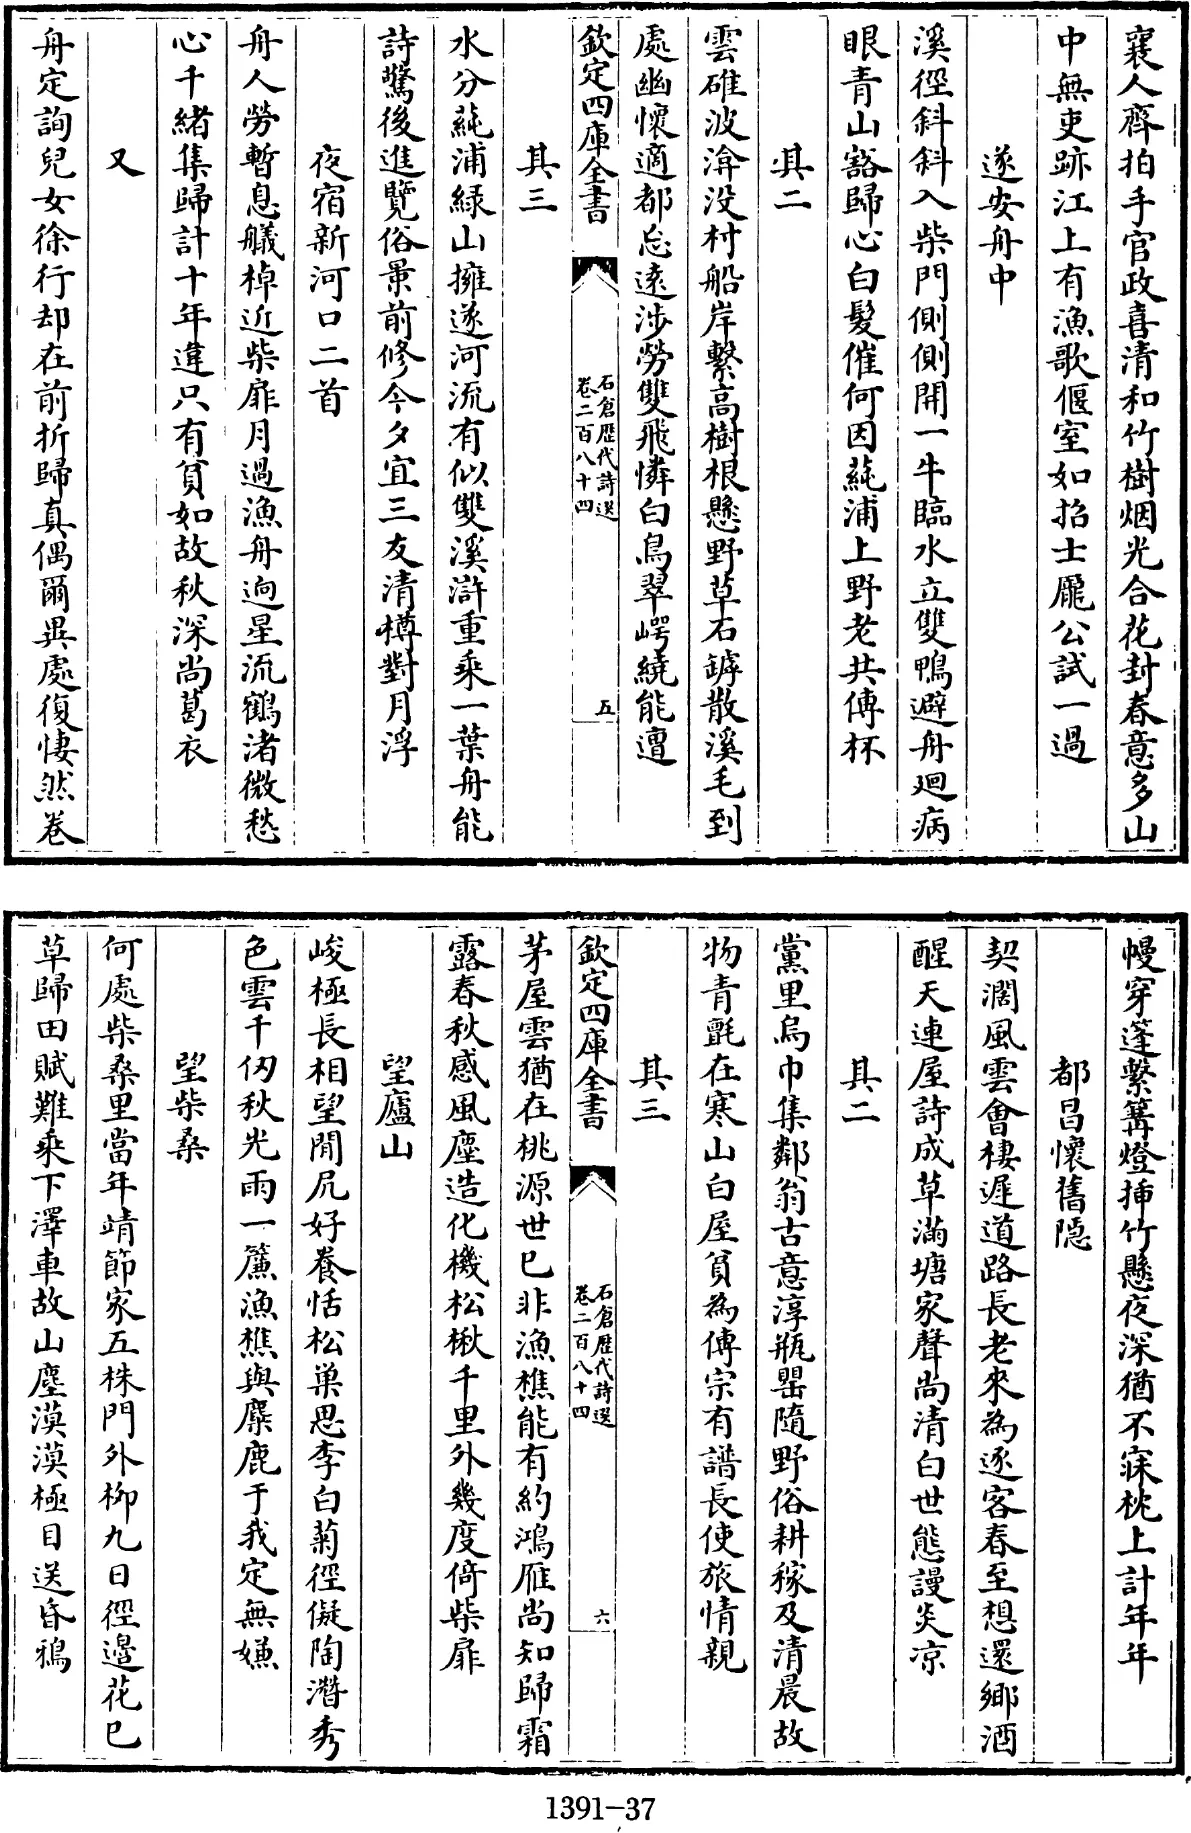 襄人齊拍手官政喜清和竹樹烟光合花封春意多山
中無吏跡江上有漁歌偃室如招士龐公試一過
遂安舟中
溪徑斜斜入柴門側側開一牛臨水立雙鴨避舟廻病
眼青山豁歸心白髮催何因蒓浦上野老共傳杯
其二
雲碓波渰没村船岸繫高樹根懸野草石罅散溪毛到
處幽懷適都忘遠涉勞雙飛憐白鳥翠崿繞能遭
欽定四庫全書
石倉歴代詩選
卷二百八十四
五
其三
水分蒓浦綠山擁遂河流有似雙溪滸重乘一葉舟能
詩驚後進覽俗景前修今夕宜三友清樽對月浮
夜宿新河口二首
舟人勞暫息艤棹近柴扉月過漁舟逈星流鶴渚微愁
心千緒集歸計十年違只有貧如故秋深尚葛衣
又
舟定詢兒女徐行却在前折歸真偶爾異處復悽然卷
幔穿蓬繫篝燈挿竹懸夜深猶不寐枕上計年年
都昌懷舊隠
契濶風雲會棲遲道路長老來為逐客春至想還鄉酒
醒天連屋詩成草滿塘家聲尚清白世態謾炎凉
其二
黨里烏巾集鄰翁古意淳瓶罌隨野俗耕稼及清晨故
物青氈在寒山白屋貧為傳宗有譜長使旅情親
其三
欽定四庫全書
石倉歴代詩選
卷二百八十四
六
茅屋雲猶在桃源世已非漁樵能有約鴻雁尚知歸霜
露春秋感風塵造化機松楸千里外幾度倚柴扉
望廬山
峻極長相望閒凥好養恬松巢思李白菊徑儗陶潛秀
色雲千仭秋光雨一簾漁樵與麋鹿于我定無嫌
望柴桑
何處柴桑里當年靖節家五株門外柳九日徑邉花已
草歸田賦難乘下澤車故山塵漠漠極目送昏鴉
1391-37